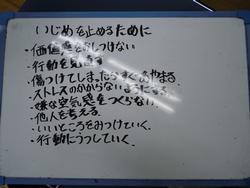 いじめを止めるために
・価値感をおしつけない
・行動を見直す
・傷つけてしまったらすぐあやまる
・ストレスのかからないようにする
・嫌な空気感をつくらない
・他人を考える。
・いいところをみつけていく。
・行動にうつしていく。